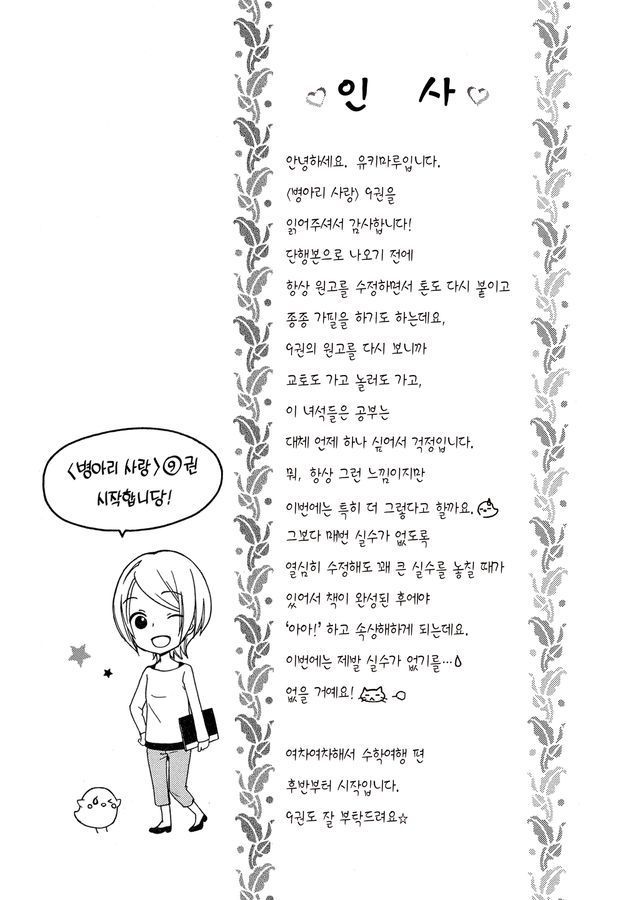 인 사
안녕하세요. 유키마루입니다.
<병아리 사랑> 9권을
읽어주셔서 감사합니다!
단행본으로 나오기 전에
항상 원고를 수정하면서 톤도 다시 붙이고
종종 가필을 하기도 하는데요,
9권의 원고를 다시 보니까
교토도 가고 놀러도 가고,
이 녀석들은 공부는
대체 언제 하나 싶어서 걱정입니다.
뭐, 항상 그런 느낌이지만
이번에는 특히 더 그렇다고 할까요.
그보다 매번 실수가 없도록
열심히 수정해도 꽤 큰 실수를 놓칠 때가
있어서 책이 완성된 후에야
'아아!' 하고 속상해하게 되는데요.
이번에는 제발 실수가 없기를…
없을 거예요!
여차여차해서 수학여행 편
후반부터 시작입니다.
9권도 잘 부탁드려요☆
<병아리 사랑> ⑨권
시작합니당!